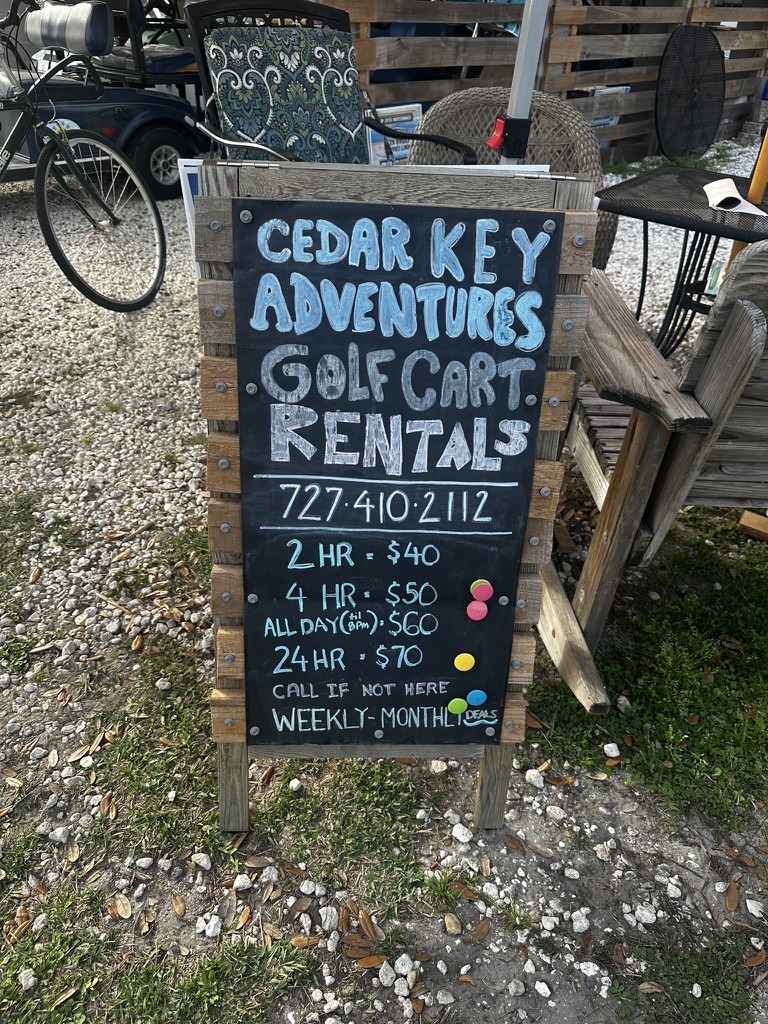 CEDAR KEY
ADVENTURES
GOLF CART
RENTALS
727·410·2112
2 HR = $40
4 HR = $50
ALL DAY (til 8PM) = $60
24 HR = $70
CALL IF NOT HERE
WEEKLY - MONTHLY DEALS